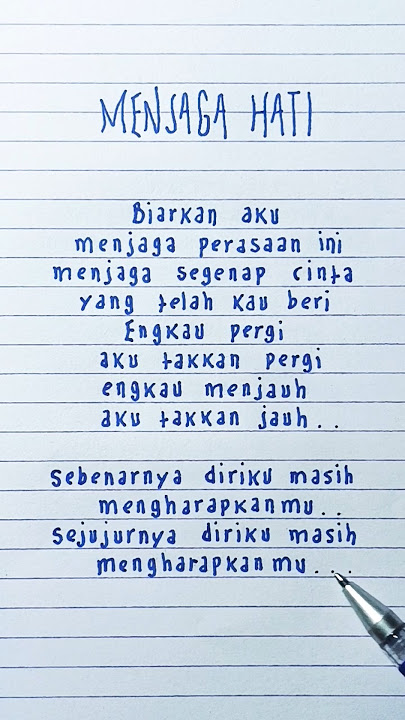 MENJAGA HATI
Biarkan aku
menjaga perasaan ini
menjaga segenap cinta
yang telah kau beri
Engkau pergi
aku takkan pergi
engkau menjauh
aku takkan jauh..
Sebenarnya diriku masih
mengharapkanmu..
Sejujurnya diriku masih
mengharapkanmu...